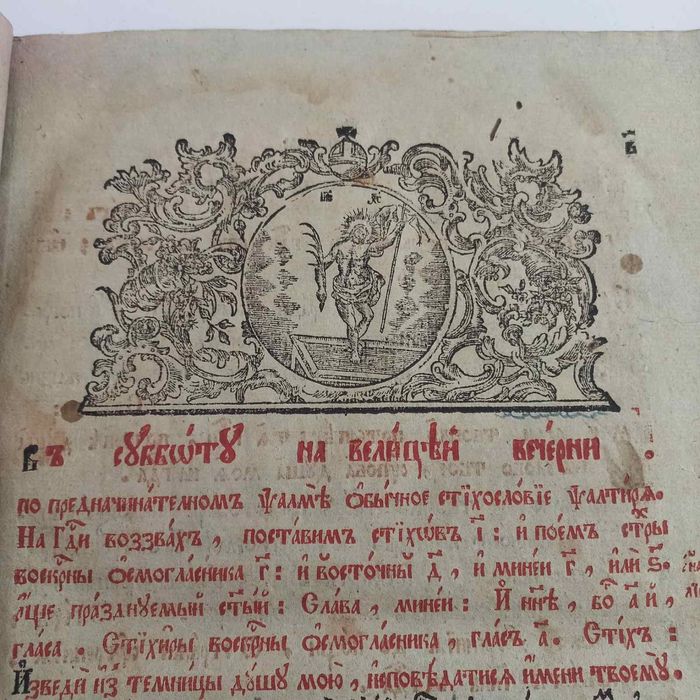 І҃С Х҃С
в҃
Въ сꙋббѡ́тꙋ на вели́цѣй вече́рни .
по предначина́телномъ ѱалмѣ̀ ѻ҆бы́чное стїхосло́вїе ѱалти́рѧ.
На Гдⷭ҇и воззва́хъ , поста́вимъ стїхѡ́въ і҃ : и҆ пое́мъ стⷯры
воскрⷭ҇ны ѻ҆смогла́сника г҃ : и҆ восто́чны д҃ , и҆ мине́и г҃ , и҆лѝ ѕ҃.
а҆́ще пра́зднꙋемый ст҃ы́й : Сла́ва , мине́и : И҆ нн҃ѣ , бг҃о а҃ й ,
гла́са . Стїхи́ры воскрⷭ҇ны ѻ҆смогла́сника , гла́съ а҃ . Сті́хъ :
И҆зведѝ и҆з̾ темни́цы дꙋ́шꙋ мою̀ , и҆сповѣ́датисѧ и҆́мени твоемꙋ̀.